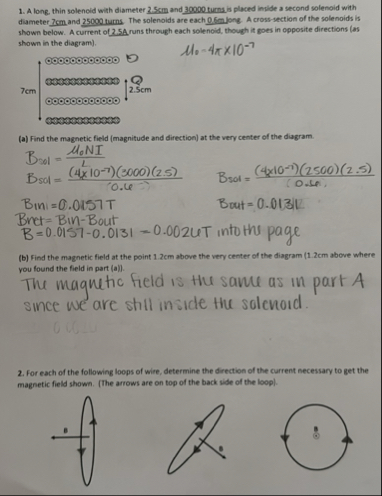 1. A long, thin solenoid with diameter 2.5cm and 30000 turns is placed inside a second solenoid with
diameter 7cm and 25000 turns. The solenoids are each 0.6m long. A cross-section of the solenoids is
shown below. A current of 2.5A runs through each solenoid, though it goes in opposite directions (as
shown in the diagram).
μ₀ - 4π×10⁻⁷
7cm
2.5cm
(a) Find the magnetic field (magnitude and direction) at the very center of the diagram.
Bsol = μ₀NI / L
Bsol = (4×10⁻⁷)(3000)(2.5) / (0.6)
Bsol = (4×10⁻⁷)(2500)(2.5) / (0.6)
Bini = 0.0157T
Bout = 0.0131
Bnet = Bin - Bout
B = 0.0157 - 0.0131 - 0.0026T into the page
(b) Find the magnetic field at the point 1.2cm above the very center of the diagram (1.2cm above where
you found the field in part (a)).
The magnetic field is the same as in part A
since we are still inside the solenoid.
2. For each of the following loops of wire, determine the direction of the current necessary to get the
magnetic field shown. (The arrows are on top of the back side of the loop).
B
B
B